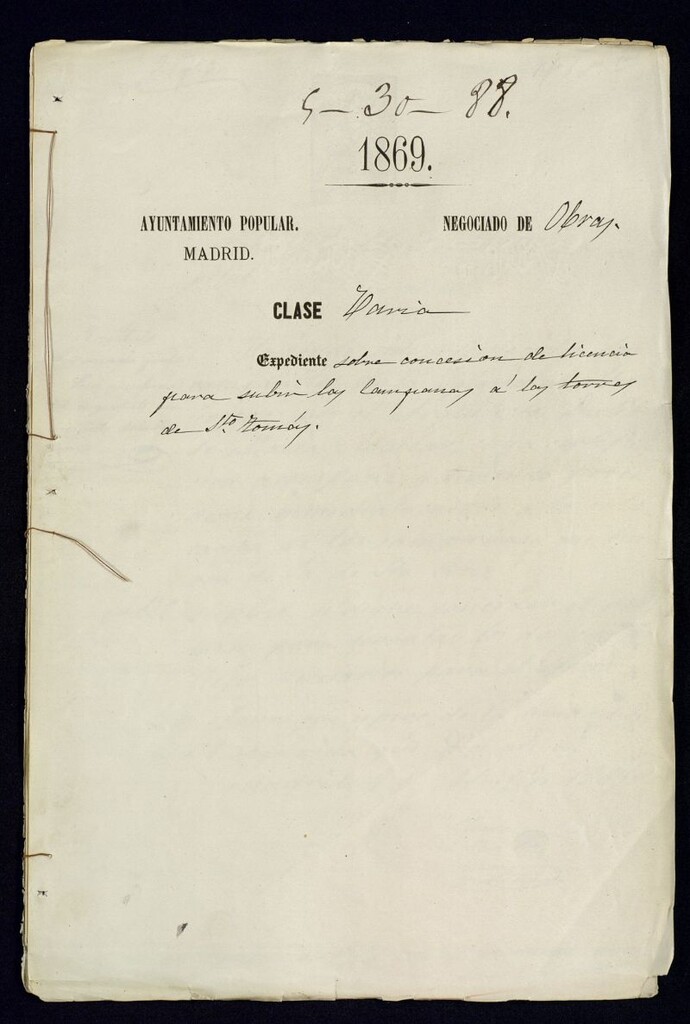 5 - 30 - 88.
1869.
AYUNTAMIENTO POPULAR. NEGOCIADO DE Obras.
MADRID.
CLASE Varia
Expediente sobre concesión de licencia
para subir las campanas á las torres
de Sto. Tomás.